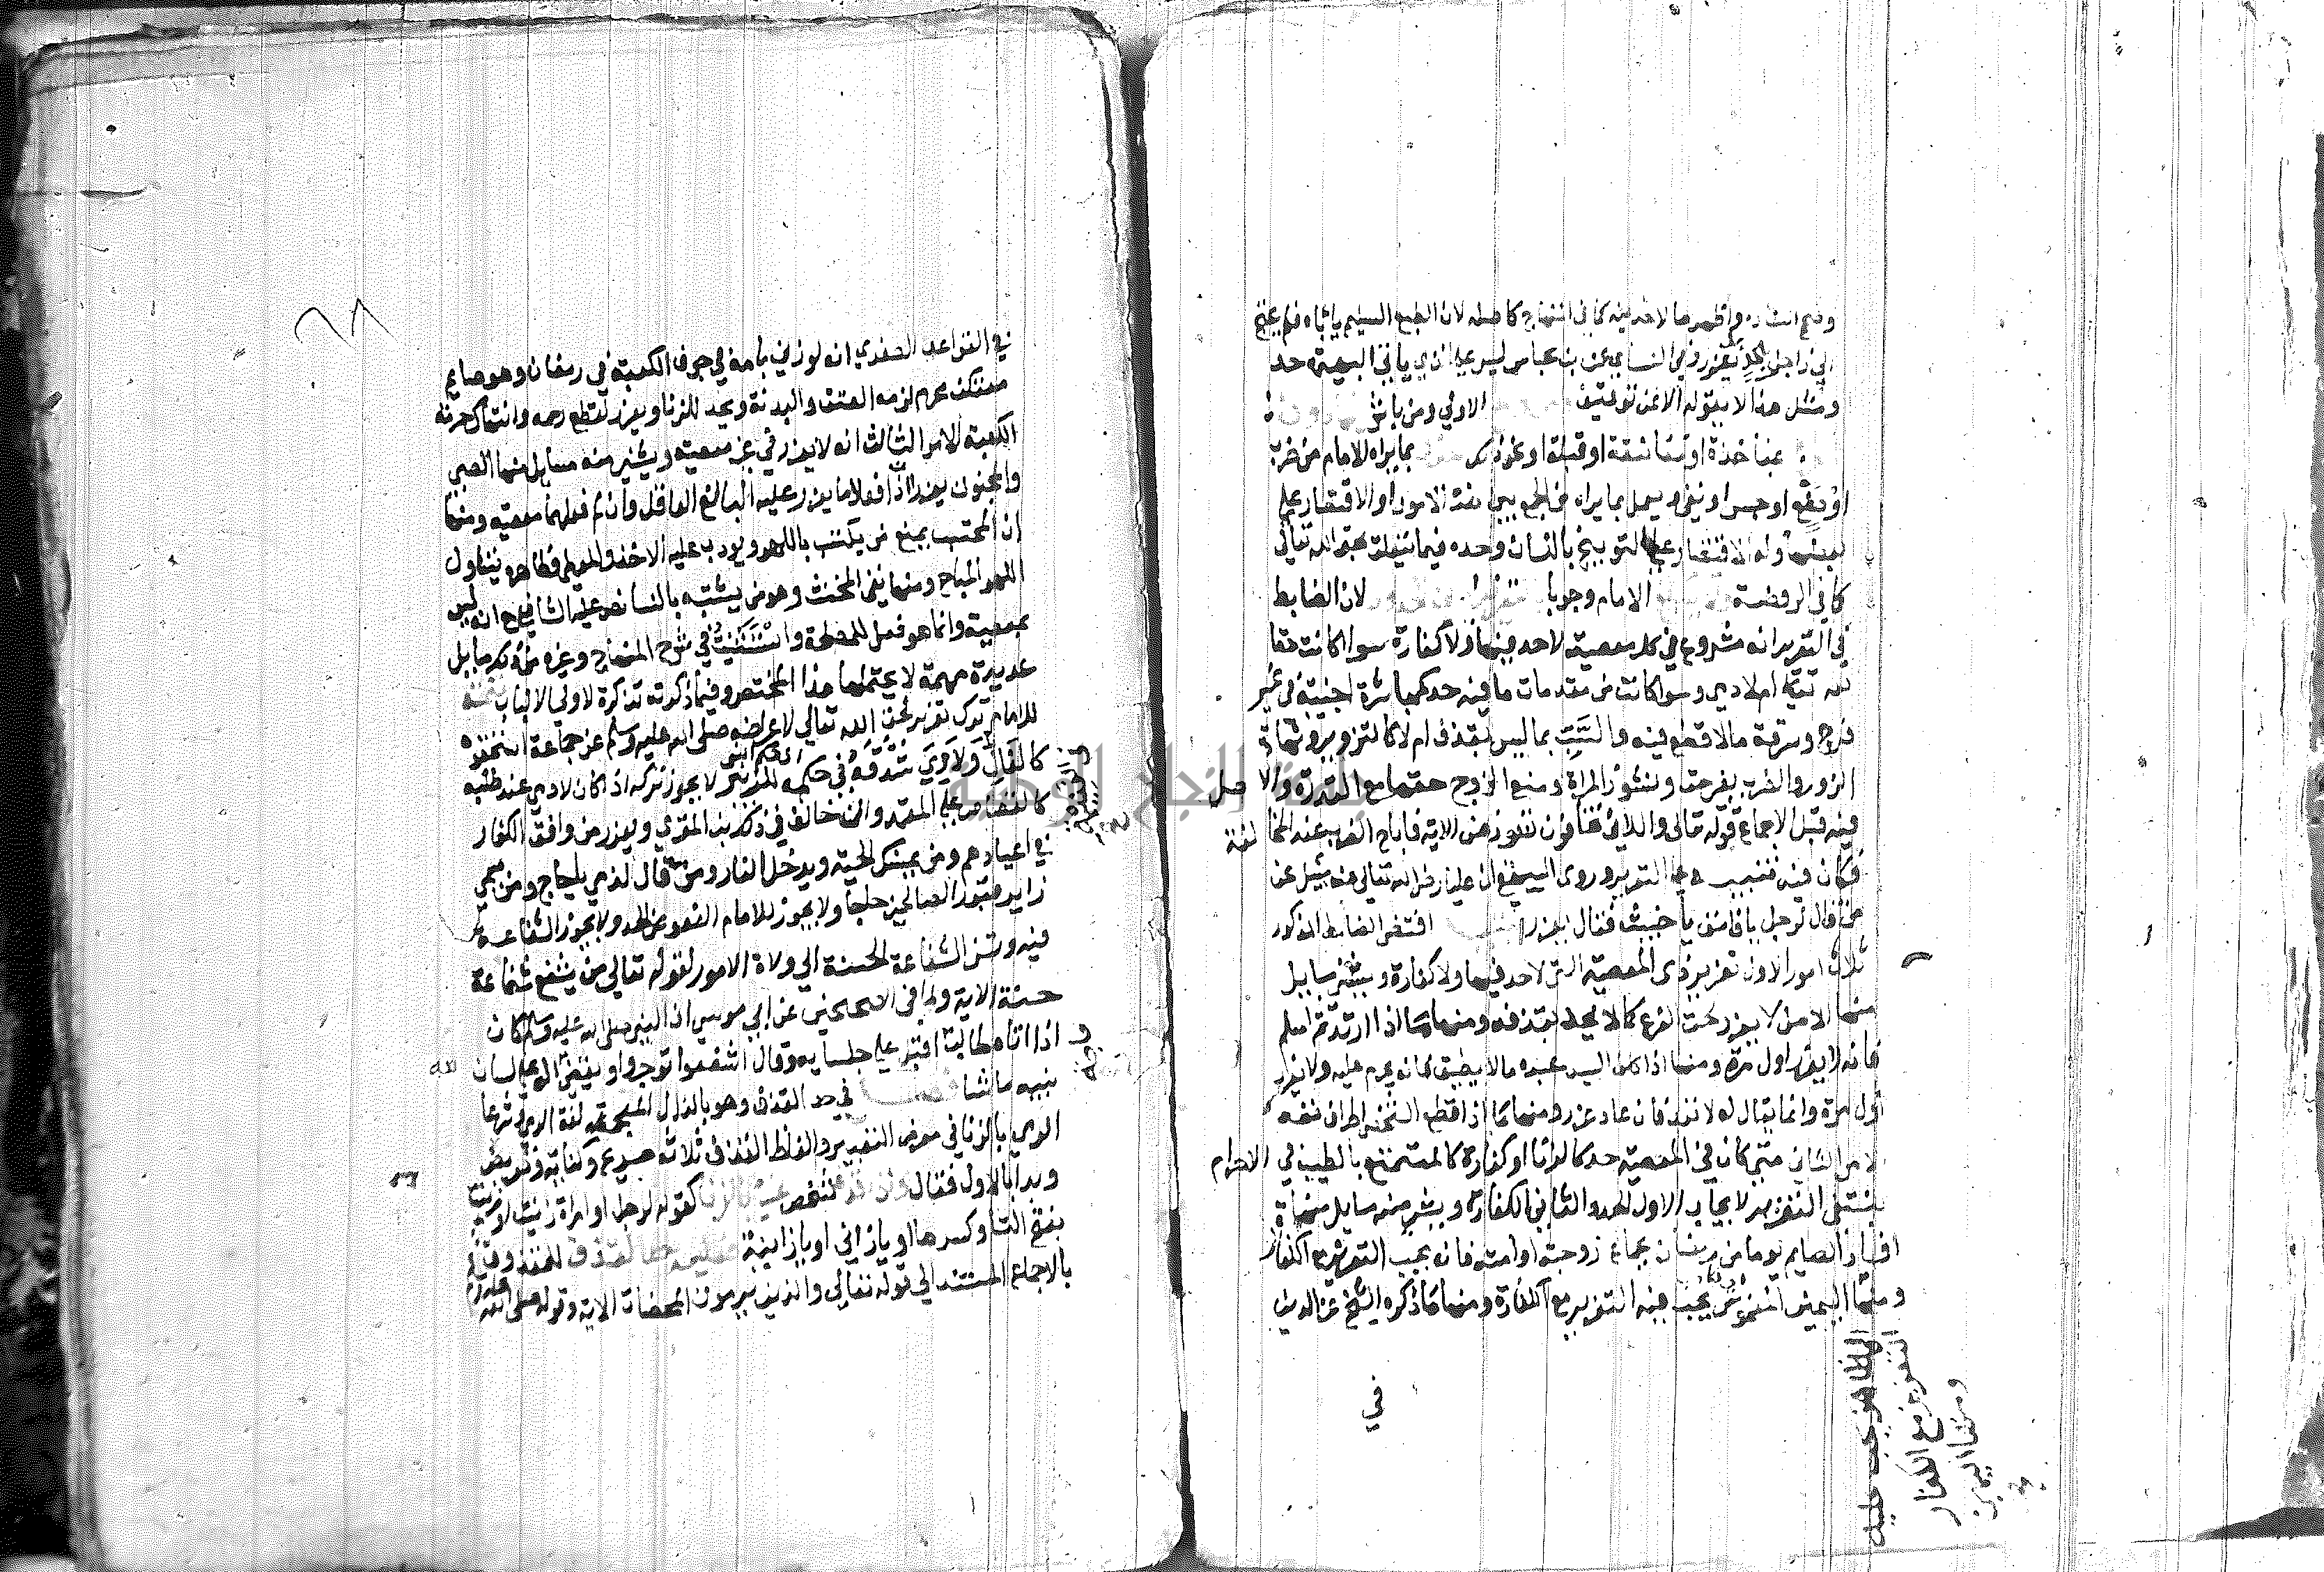 وضم الشاء واظهرهما لا حد فيه كما في المنهاج كاصله لان الطبع السليم ياباه فلم يحتج
الى زاجر بحد بل يعزر وفي النساي عن بن عباس ليس على الذي ياتي البهيمة حد
ومثل هذا لا يقوله الا عن توقيف الاولى ومن باشر
بمفاخذة او معانقة او قبلة او نحو ذلك بما يراه الامام من ضرب
او صفع او حبس او نفي ويعمل بما يراه من الجمع بين هذه الامور او الاقتصار على
بعضها وله الاقتصار على التوبيخ باللسان وحده فيما يتعلق بحق الله تعالى
كما في الروضة الامام وجوبا لان الضابط
في التعزير انه مشروع في كل معصية لا حد فيها ولا كفارة سوا كانت حقا
لله تعالى ام لادمي وسوا كانت من مقدمات ما فيه حد كمباشرة اجنبية في غير
فرج وسرقة ما لا قطع فيه والسب بما ليس بقذف ام لا كالتزوير وشهادة
الزور والضرب بغير حق ونشوز المراة ومنع الزوج حقها مع القدرة والاصل
فيه قبل الاجماع قوله تعالى واللاتي تخافون نشوزهن الاية فاباح الضرب عند المخالفة
فكان فيه تنبيه على التعزير وروى البيهقي ان عليا رضي الله تعالى عنه سئل عن
من قال لرجل يا فاسق يا خبيث فقال يعزر اقتضى الضابط المذكور
ثلاث امور الاول تعزير ذي المعصية التي لا حد فيها ولا كفارة ويستثنى مسايل
منها الاصل لا يعزر لحق الفرع كما لا يحد بقذفه ومنها ما اذا ارتد ثم اسلم
فانه لا يعزر اول مرة ومنها اذا كلف السيد عبده ما لا يطيق فانه يحرم عليه ولا يعزر
اول مرة وانما يقال له لا تعد فان عاد عزر ومنها ما اذا قطع الشخص اطراف نفسه
الامر الثاني متى كان في المعصية حد كالزنا او كفارة كالمتمتع بالطيب في الاحرام
ينتفي التعزير لايجاب الاول الحد والثاني الكفارة ويستثنى منه مسايل منها
افساد الصايم يوما من رمضان بجماع زوجته او امته فانه يجب التعزير مع الكفارة
ومنها اليمين الغموس يجب فيها التعزير مع الكفارة ومنها ما ذكره الشيخ عز الدين
في
في القواعد الصغرى انه لو زنى بامه في جوف الكعبة في رمضان وهو صايم
معتكف محرم لزمه العتق والبدنة ويحد للزنا ويعزر لقطع رحمه وانتهاك حرمة
الكعبة الامر الثالث انه لا يعزر في غير معصية ويستثنى منه مسايل منها الصبي
والمجنون يعزران اذا فعلا ما يعزر عليه البالغ العاقل وان لم يكن فعلهما معصية ومنها
ان المحتسب يمنع من يكتسب باللهو ويودب عليه الاخذ والمعطي وظاهره يتناول
اللهو المباح ومنها نفي المخنث وهو من يتشبه بالنسا نص عليه الشافعي مع انه ليس
بمعصية وانما هو فعل للمصلحة واستثنيت في شرح المنهاج وغيره من ذلك مسايل
عديدة مهمة لا يحتملها هذا المختصر وفيما ذكرته تذكرة لاولي الالباب تتمة
للامام ترك تعزير لحق الله تعالى لاعراضه صلى الله عليه وسلم عن جماعة استحقوه
كالغال ولاوي شدقه في حكمه للزبير لا يجوز تركه اذا كان لادمي عند طلبه
كالقصاص على المعتمد وان خالف في ذلك بن المقري ويعزر من وافق الكفار
في اعيادهم ومن يمسك الحية ويدخل النار ومن قال لذمي يا حاج ومن سمى
زاير قبور الصالحين حاجا ولا يجوز للامام العفو عن الحد ولا يجوز الشفاعة
فيه وتسن الشفاعة الحسنة الى ولاة الامور لقوله تعالى من يشفع شفاعة
حسنة الاية ولما في الصحيحين عن ابي موسى ان النبي صلى الله عليه وسلم كان
اذا اتاه طالب اقبل على جلسايه وقال اشفعوا توجروا ويقضي الله على لسان
نبيه ما شا في حد القذف وهو بالذال المعجمة لغة الرمي وشرعا
الرمي بالزنا في معرض التعيير والفاظ القذف ثلاثة صريح وكناية وتعريض
وبدا بالاول فقال كقوله لرجل او امراة زنيت او زنيت
بفتح التا وكسرها او يا زاني او يا زانية للمقذوف
بالاجماع المستند الى قوله تعالى والذين يرمون المحصنات الاية وقوله صلى الله عليه وسلم